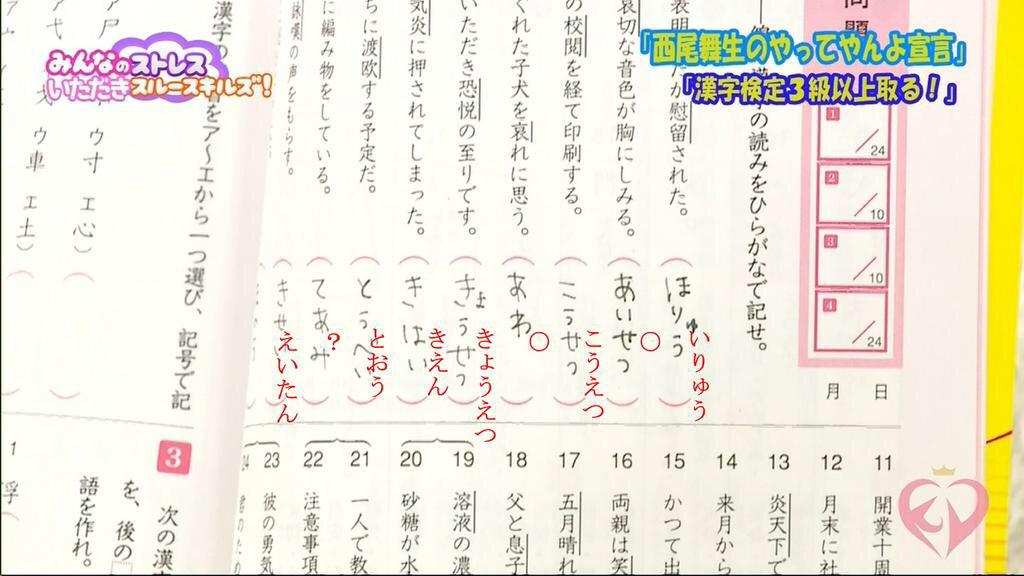 みんなのストレス
いただきスルースキルズ!
「西尾舞生のやってやんよ宣言」
「漢字検定3級以上取る!」
1
/24
2
/10
3
/10
4
/24
月 日
の読みをひらがなで記せ。
表明したが慰留された。
哀切な音色が胸にしみる。
の校閲を経て印刷する。
ぐれた子犬を哀れに思う。
いただき恐悦の至りです。
気炎に押されてしまった。
ちに渡欧する予定だ。
に編み物をしている。
詠嘆の声をもらす。
ほりゅう
あいせつ
こうせつ
あわ
きょうせつ
きはい
とうへい
てあみ
いりゅう
○
こうえつ
○
きょうえつ
きえん
とおう
?
えいたん
11 開業十周
12 月末に社
13 炎天下で
14 来月から
15 かつて出
16 両親は笑
17 五月晴れ
18 父と息子
19 溶液の濃
20 砂糖が水
21 一人で教
22 注意事項
23 彼の勇気
24
をア〜エから一つ選び、記号で記
ア尸
ウ寸 エ心)
ウ車 エ土)
3 次の漢
を、後の
語を作れ。
1